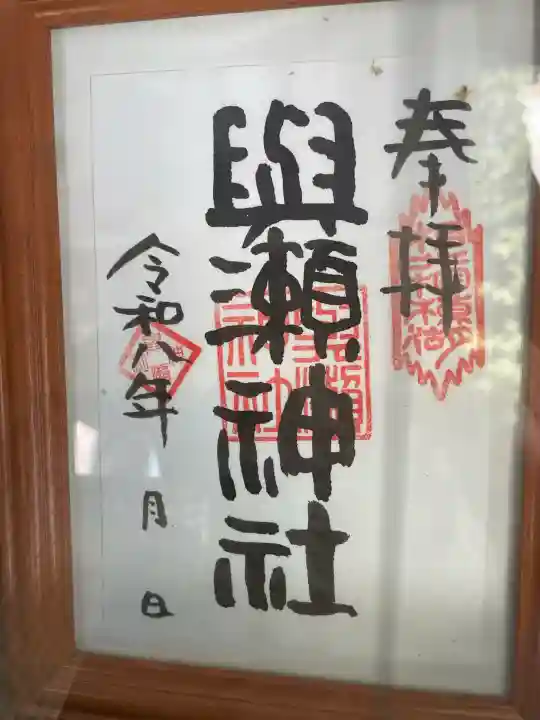 奉拝
與瀬神社
令和八年 月 日
與瀬神社